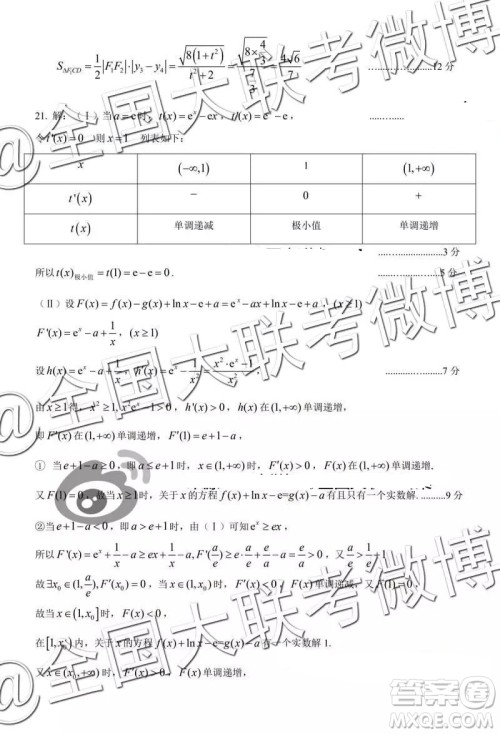 S_{ΔF₁CD} = 1/2|F₁F₂|·|y₃-y₄| = √(8(1+t²))/(t²+2) = √(8×4/3)/(7/3) = 4√6/7 ............12 分
21. 解:(Ⅰ)当 a=e 时, t(x)=eˣ-ex, t'(x)=eˣ-e, ............
令 t'(x)=0 则 x=1 列表如下:
x (-∞,1) 1 (1,+∞)
t'(x) − 0 +
t(x) 单调递减 极小值 单调递增
............3 分
所以 t(x)极小值=t(1)=e-e=0. ............5 分
(Ⅱ)设 F(x)=f(x)-g(x)+ln x-e+a=eˣ-ax+ln x-e+a, (x≥1)
F'(x)=eˣ-a+1/x, (x≥1)
设 h(x)=eˣ-a+1/x, h'(x)=eˣ-1/x²=(x²·eˣ-1)/x² ............7 分
由 x≥1 得, x²≥1, x²eˣ-1>0, h'(x)>0, h(x) 在 (1,+∞) 单调递增,
即 F'(x) 在 (1,+∞) 单调递增, F'(1)=e+1-a,
① 当 e+1-a≥0, 即 a≤e+1 时, x∈(1,+∞) 时, F(x) 在 (1,+∞) 单调递增,
又 F(1)=0, 故当 x≥1 时, 关于 x 的方程 f(x)+ln x-e=g(x)-a 有且只有一个实数解. ..........9 分
②当 e+1-a<0, 即 a>e+1 时, 由(Ⅰ)可知 eˣ≥ex,
所以 F'(x)=eˣ+1/x-a≥ex+1/x-a, F'(a/e)≥e·a/e+e/a-a=e/a>0, 又 a/e>1/e+1
故 ∃x₀∈(1,a/e), F'(x₀)=0, 当 x∈(1,x₀) 时, F(x) 单调递减, 又 F(1)=0
故当 x∈(1,x₀] 时, F(x)<0,
在 [1,x₀) 内, 关于 x 的方程 f(x)+ln x-e=g(x)-a 有一个实数解 1.
又 x∈(x₀,+∞) 时, F'(x)>0, F(x) 单调递增,
@全国大联考微博
@全国大联考微博
答案圈
MXQE.COM